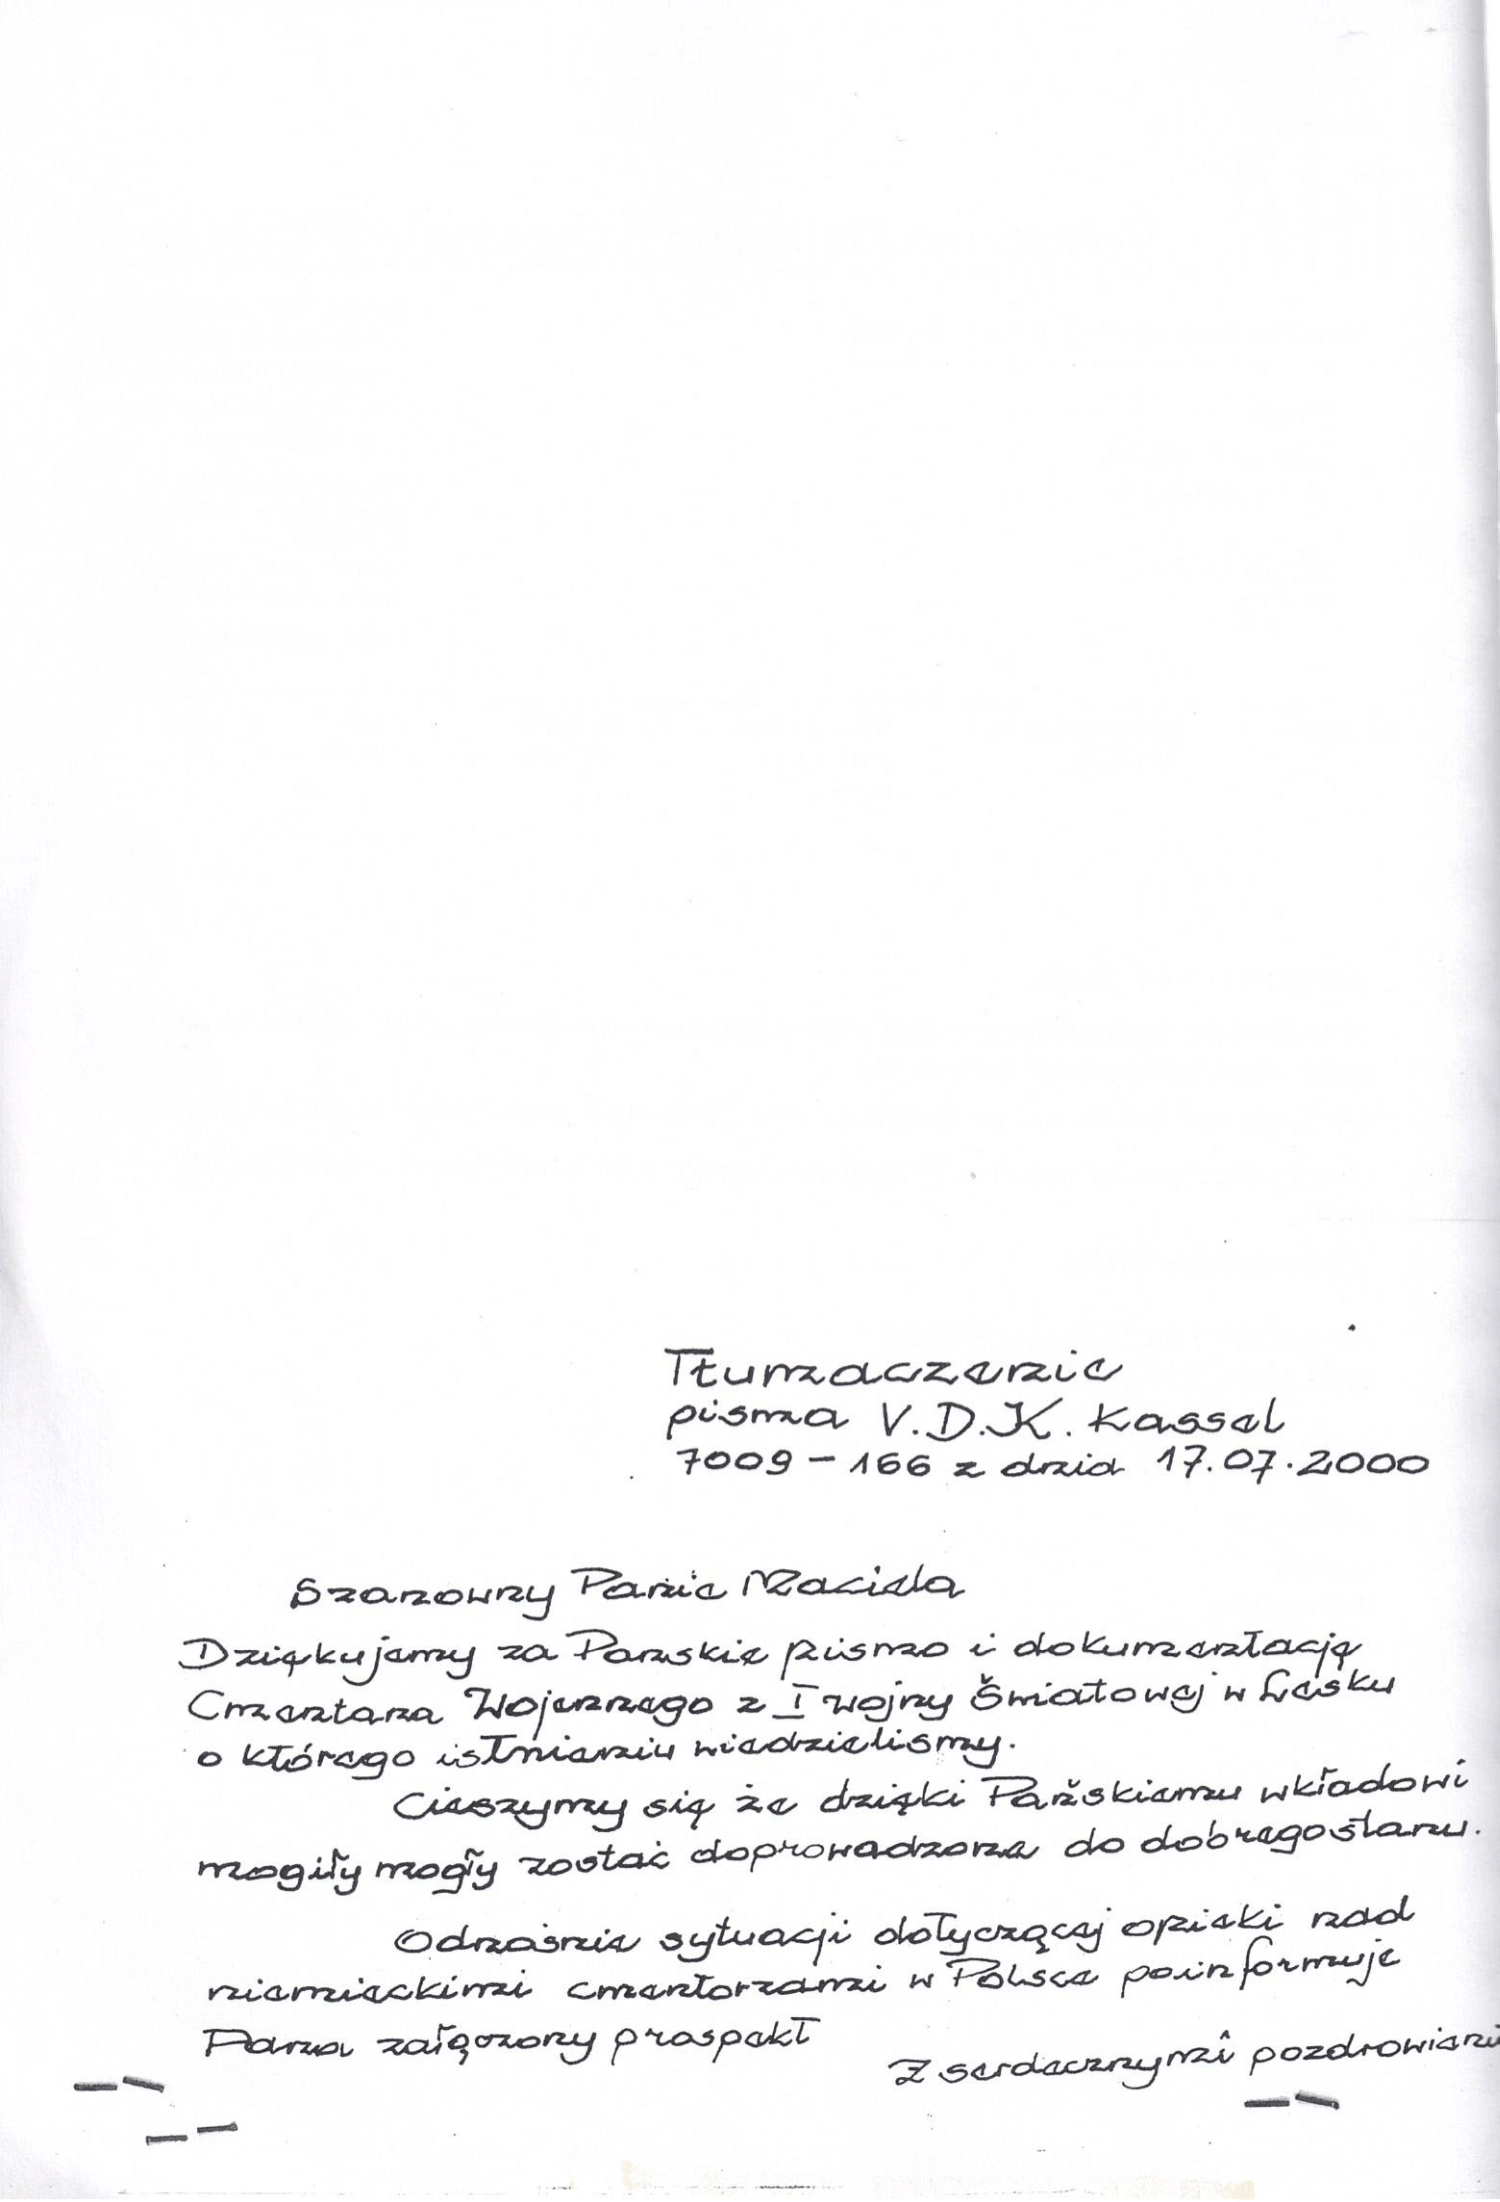 Tłumaczenie
pisma V.D.K. Kassel
7009 – 166 z dnia 17.07.2000
Szanowny Panie Maciela
Dziękujemy za Pańskie pismo i dokumentację
Cmentarza Wojennego z I Wojny Światowej w Lesku
o którego istnieniu wiedzieliśmy.
Cieszymy się że dzięki Pańskiemu wkładowi
mogiły mogły zostać doprowadzone do dobrego stanu.
Odnośnie sytuacji dotyczącej opieki nad
niemieckimi cmentarzami w Polsce poinformuje
Pana załączony prospekt
Z serdecznymi pozdrowieni